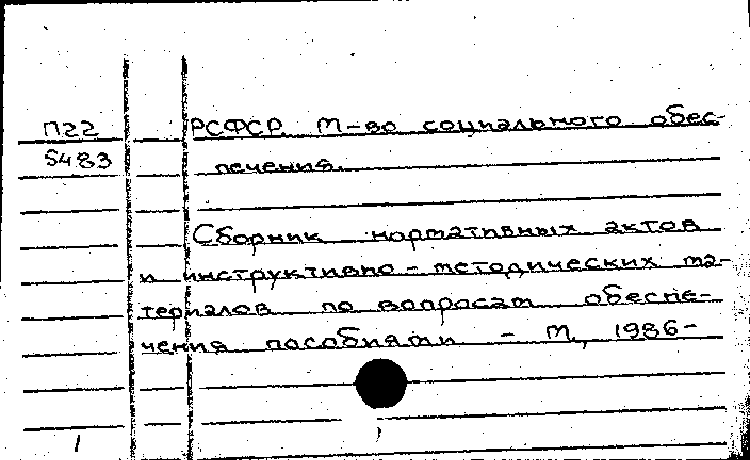 П22 РСФСР. М-во социального обес-
5483 печения.
Сборник нормативных актов
и инструктивно-методических ма-
териалов по вопросам обеспе-
чения пособиями - М., 1986-